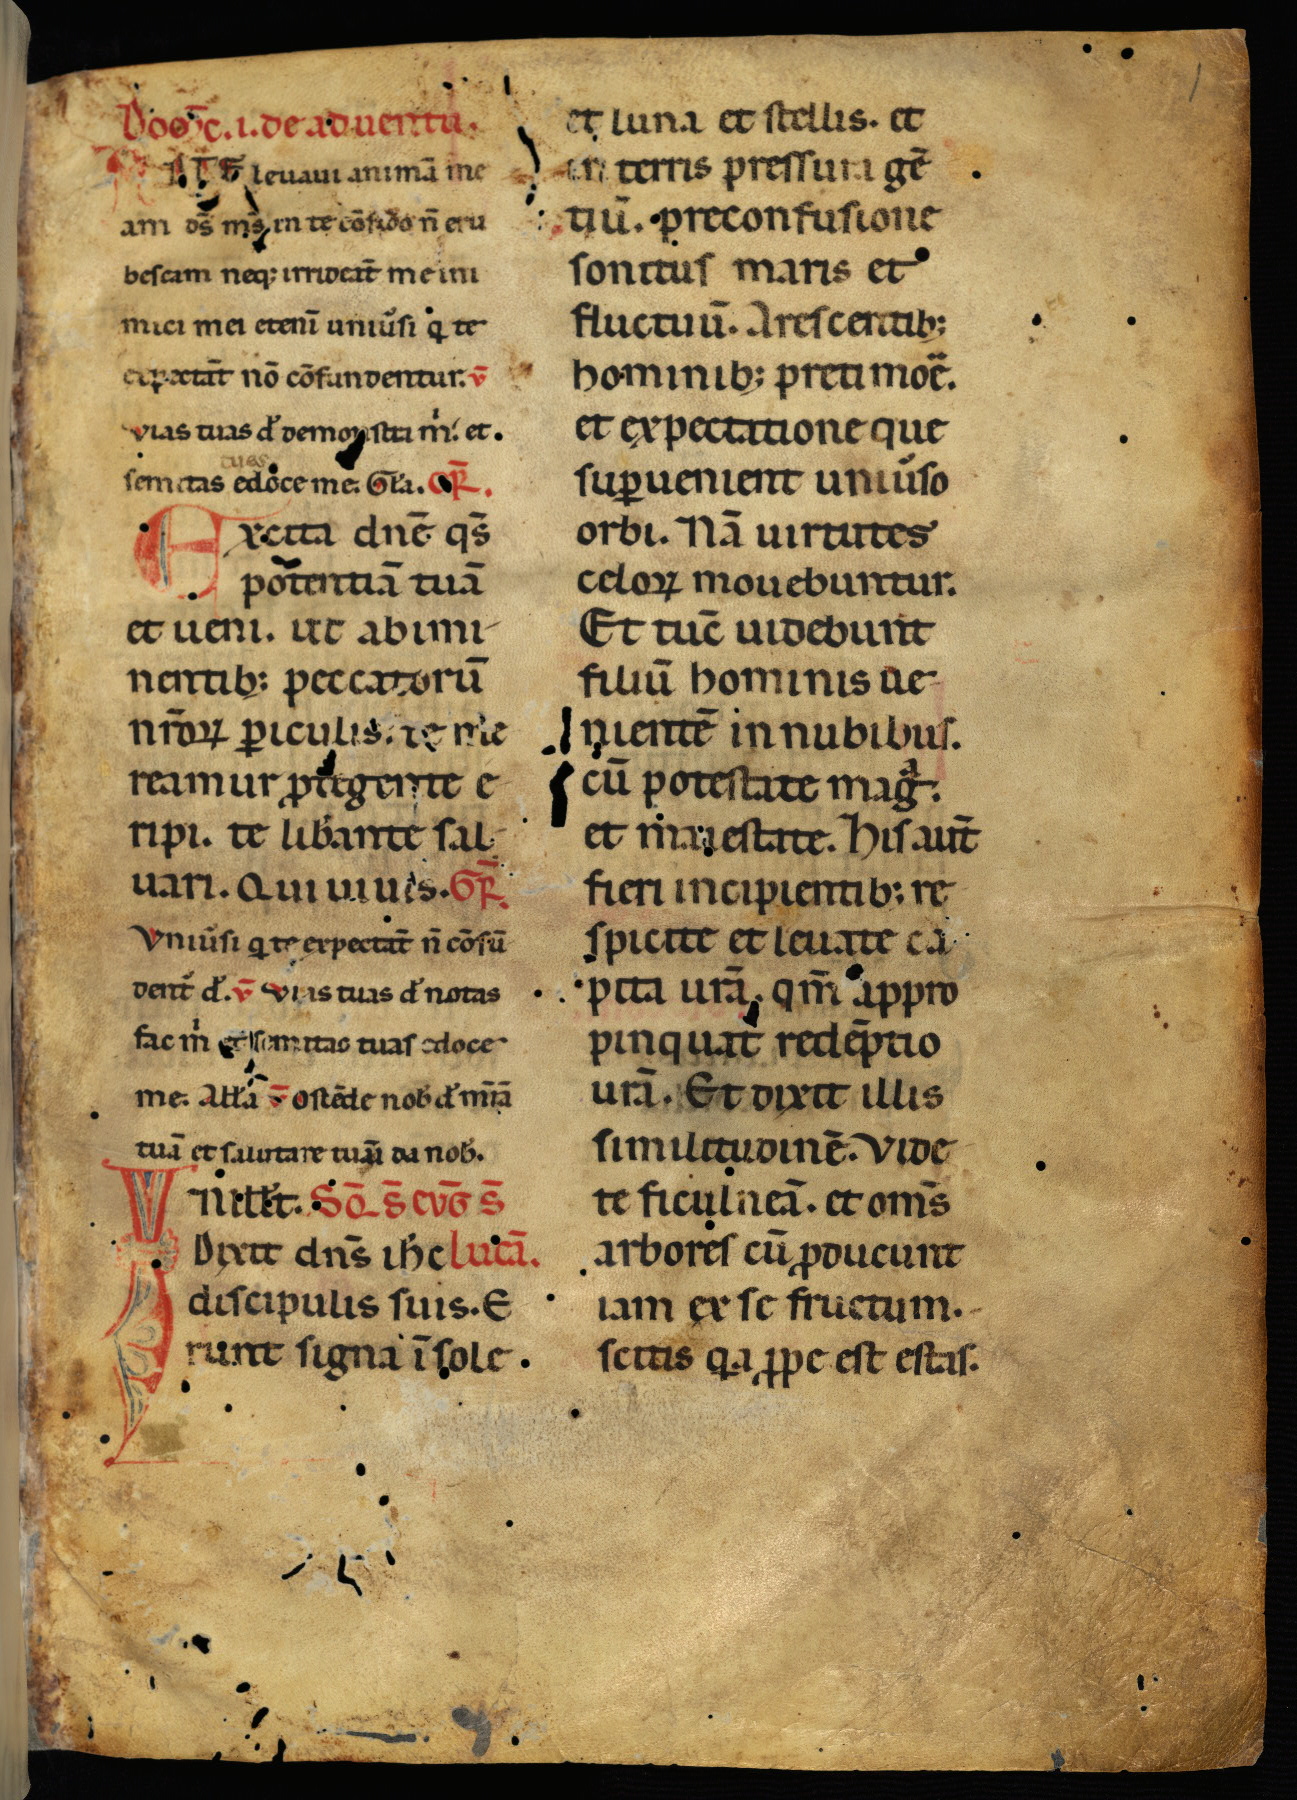 Domīc. i. de aduentu.
AD TE leuaui animā me
am dš mš in te cōfido ñ eru
bescam neq; irrideāt me ini
mici mei etenī uniūsi q te
expectāt nō cōfundentur. v̄
vias tuas d̄ demonstra m̄. et.
semitas tuas edoce me. Gła. OR̄.
Excita dnē qs̄
potentiā tuā
et ueni. ut ab imi
nentib; peccatorū
nr̄oꝝ ꝑiculis. te me
reamur ꝓtegente e
ripi. te libante sal
uari. Qui uiuis. GR̄.
Vniūsi q te expectāt ñ cōfū
dent̄ d̄. v̄ vias tuas d̄ notas
fac m̄ et semitas tuas edoce
me. Ałła v̄ ostēde nob d̄ mīā
tuā et salutare tuū da nob.
In illo t. SQ̄ s̄ euḡ s̄
Dixit dnš ih̄c lucā.
discipulis suis. E
runt signa ī sole
et luna et stellis. et
in terris pressura gē
tiū. pre confusione
sonitus maris et
fluctuū. Arescentib;
hominib; pre timoē.
et expectatione que
suꝑuenient uniūso
orbi. Nā uirtutes
celoꝝ mouebuntur.
Et tūc uidebunt
filiū hominis ue
nientē in nubibus.
cū potestate magª.
et maiestate. His aut̄
fieri incipientib; re
spicite et leuate ca
pita urā. qm̄ appro
pinquat redēptio
urā. Et dixit illis
similitudinē. Vide
te ficulneā. et om̄s
arbores cū ꝓducunt
iam ex se fructum.
scitis q.a ꝓpe est estas.